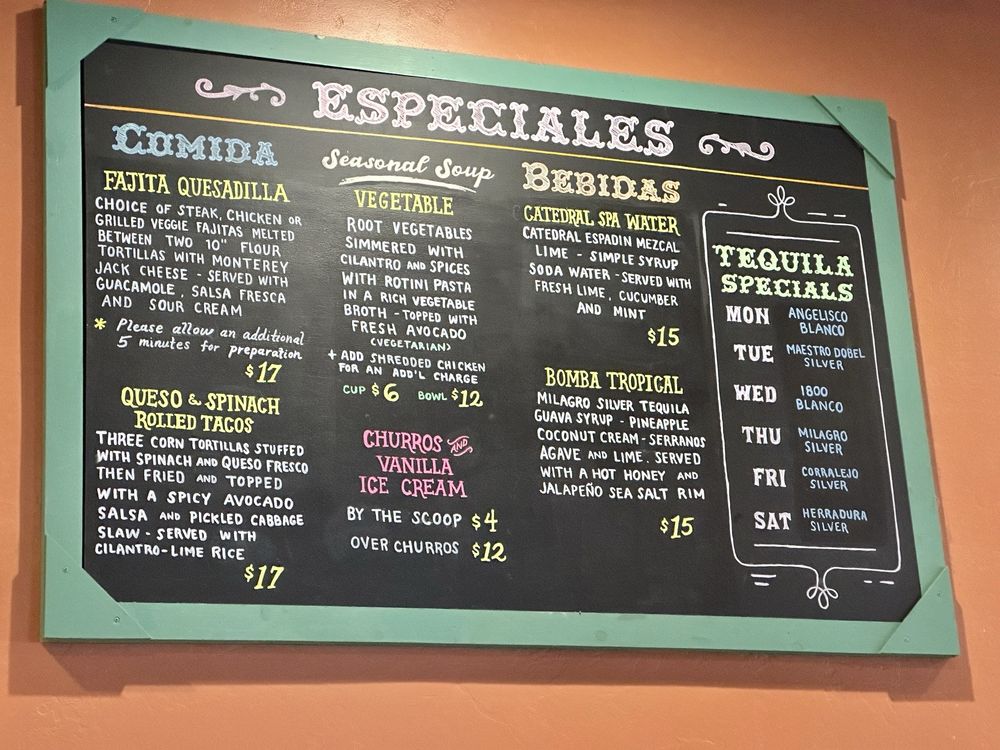 ESPECIALES
COMIDA
FAJITA QUESADILLA
CHOICE OF STEAK, CHICKEN OR
GRILLED VEGGIE FAJITAS MELTED
BETWEEN TWO 10" FLOUR
TORTILLAS WITH MONTEREY
JACK CHEESE - SERVED WITH
GUACAMOLE, SALSA FRESCA
AND SOUR CREAM
* Please allow an additional
5 minutes for preparation
$17
QUESO & SPINACH
ROLLED TACOS
THREE CORN TORTILLAS STUFFED
WITH SPINACH AND QUESO FRESCO
THEN FRIED AND TOPPED
WITH A SPICY AVOCADO
SALSA AND PICKLED CABBAGE
SLAW - SERVED WITH
CILANTRO-LIME RICE
$17
Seasonal Soup
VEGETABLE
ROOT VEGETABLES
SIMMERED WITH
CILANTRO AND SPICES
WITH ROTINI PASTA
IN A RICH VEGETABLE
BROTH - TOPPED WITH
FRESH AVOCADO
(VEGETARIAN)
+ ADD SHREDDED CHICKEN
FOR AN ADD'L CHARGE
CUP $6 BOWL $12
CHURROS AND
VANILLA
ICE CREAM
BY THE SCOOP $4
OVER CHURROS $12
BEBIDAS
CATEDRAL SPA WATER
CATEDRAL ESPADIN MEZCAL
LIME - SIMPLE SYRUP
SODA WATER - SERVED WITH
FRESH LIME, CUCUMBER
AND MINT
$15
BOMBA TROPICAL
MILAGRO SILVER TEQUILA
GUAVA SYRUP - PINEAPPLE
COCONUT CREAM - SERRANOS
AGAVE AND LIME. SERVED
WITH A HOT HONEY AND
JALAPEÑO SEA SALT RIM
$15
TEQUILA
SPECIALS
MON ANGELISCO
BLANCO
TUE MAESTRO DOBEL
SILVER
WED 1800
BLANCO
THU MILAGRO
SILVER
FRI CORRALEJO
SILVER
SAT HERRADURA
SILVER